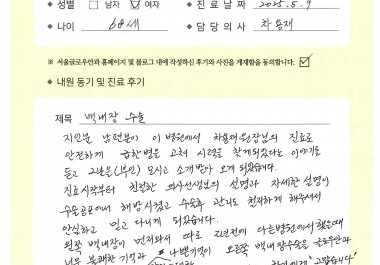 성별 남자 ☑ 여자 진료날짜 2025. 5. 9
나이 68세 담당의사 차흥재
※ 서울글로우안과 홈페이지 및 블로그 내에 작성하신 후기와 사진을 게재함을 동의합니다. ☑
내원 동기 및 진료 후기
제목 백내장 수술
지인분 남편분이 이 병원에서 원장님의 진료로
안전하게 급한병을 고쳐 시력을 찾게되었다는 이야기를
듣고 모시고 소개받아 오게 되었습니다.
진료시작부터 친절한 의사선생님의 설명과 자세한 설명이
수술공포에서 해방시켰고 수술후 관리도 철저하게 해주셔서
안심하고 믿고 다니게 되었습니다.
왼쪽 백내장이 먼저와서 따로 다른병원에서 했을때
너무 불쾌한 기억과 나빴기억이 오른쪽 백내장수술은 글로우안과
"고맙습니다"